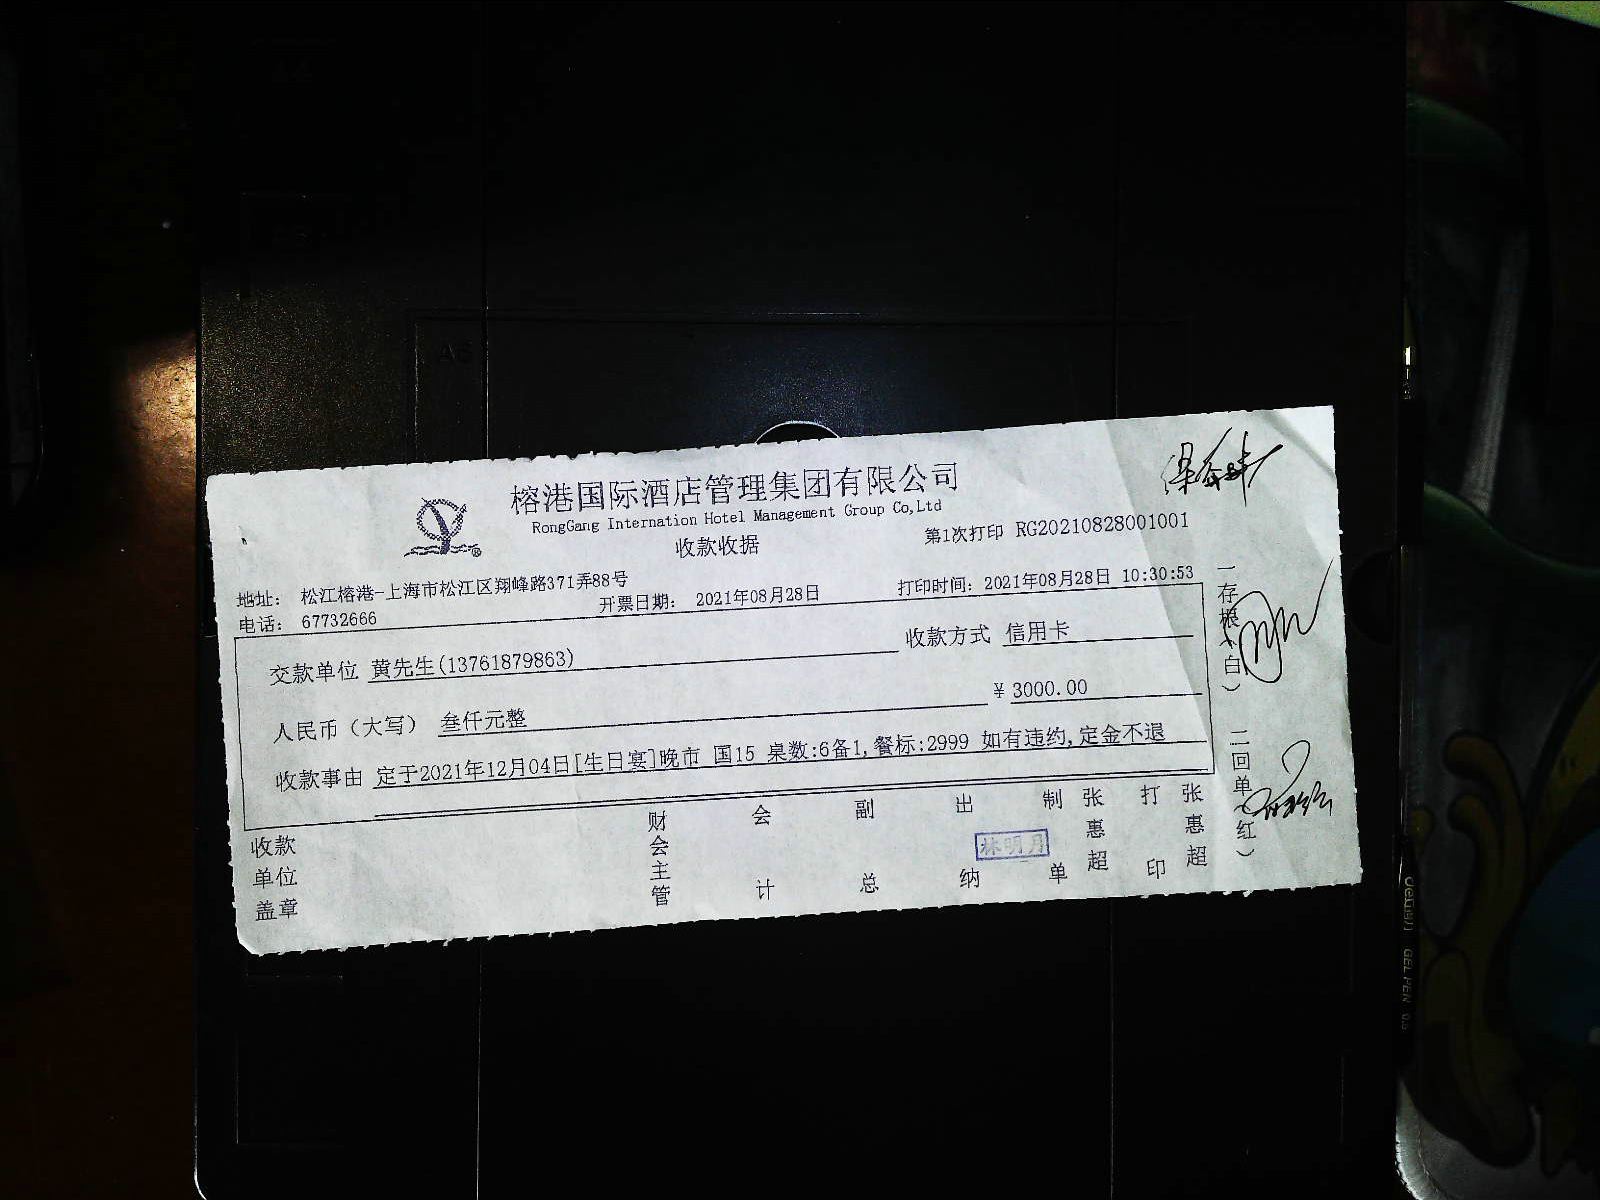 榕港国际酒店管理集团有限公司
RongGang Internation Hotel Management Group Co,Ltd
收款收据
第1次打印 RG20210828001001
地址： 松江榕港-上海市松江区翔峰路371弄88号
电话： 67732666
开票日期： 2021年08月28日
打印时间： 2021年08月28日 10:30:53
交款单位 黄先生(13761879863)
收款方式 信用卡
人民币（大写） 叁仟元整
¥ 3000.00
收款事由 定于2021年12月04日[生日宴]晚市 国15 桌数:6备1,餐标:2999 如有违约,定金不退
收款单位盖章
财会主管
会计
副总
出纳
林明月
制单
张惠超
打印
张惠超
一存根（白）
二回单（红）
A5
GEL PEN 0.5